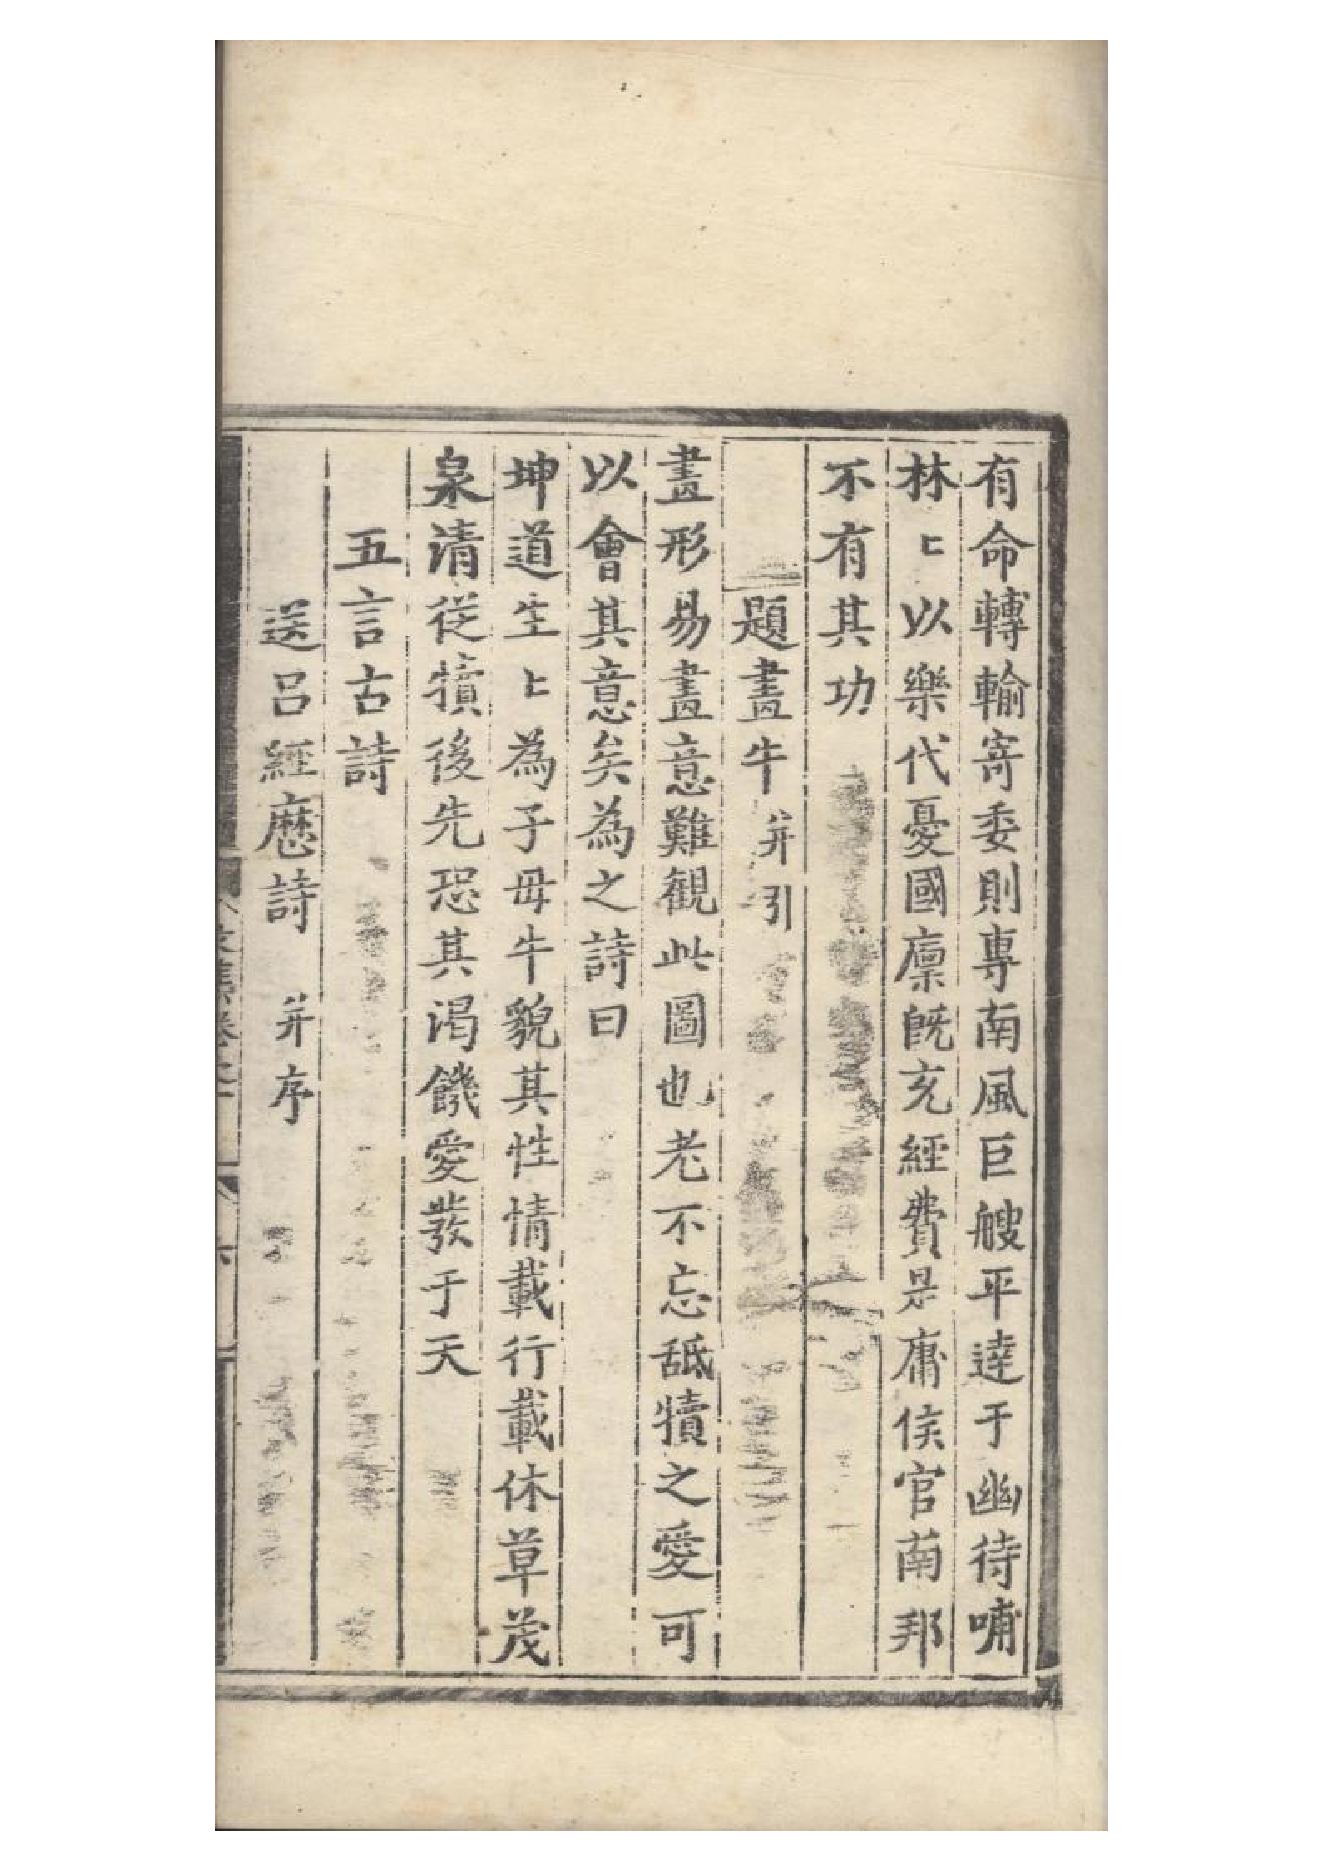 有命轉輸寄委則專南風巨艘平達于幽待哺
林〻以樂代憂國廪旣充經費是庸侯官南邦
不有其功
題畫牛并引
畫形易畫意難觀此圖也老不忘舐犢之愛可
以會其意矣為之詩曰
坤道生〻為子母牛貌其性情載行載休草茂
泉清從犢後先恐其渴饑愛發于天
五言古詩
送呂經歷詩并序